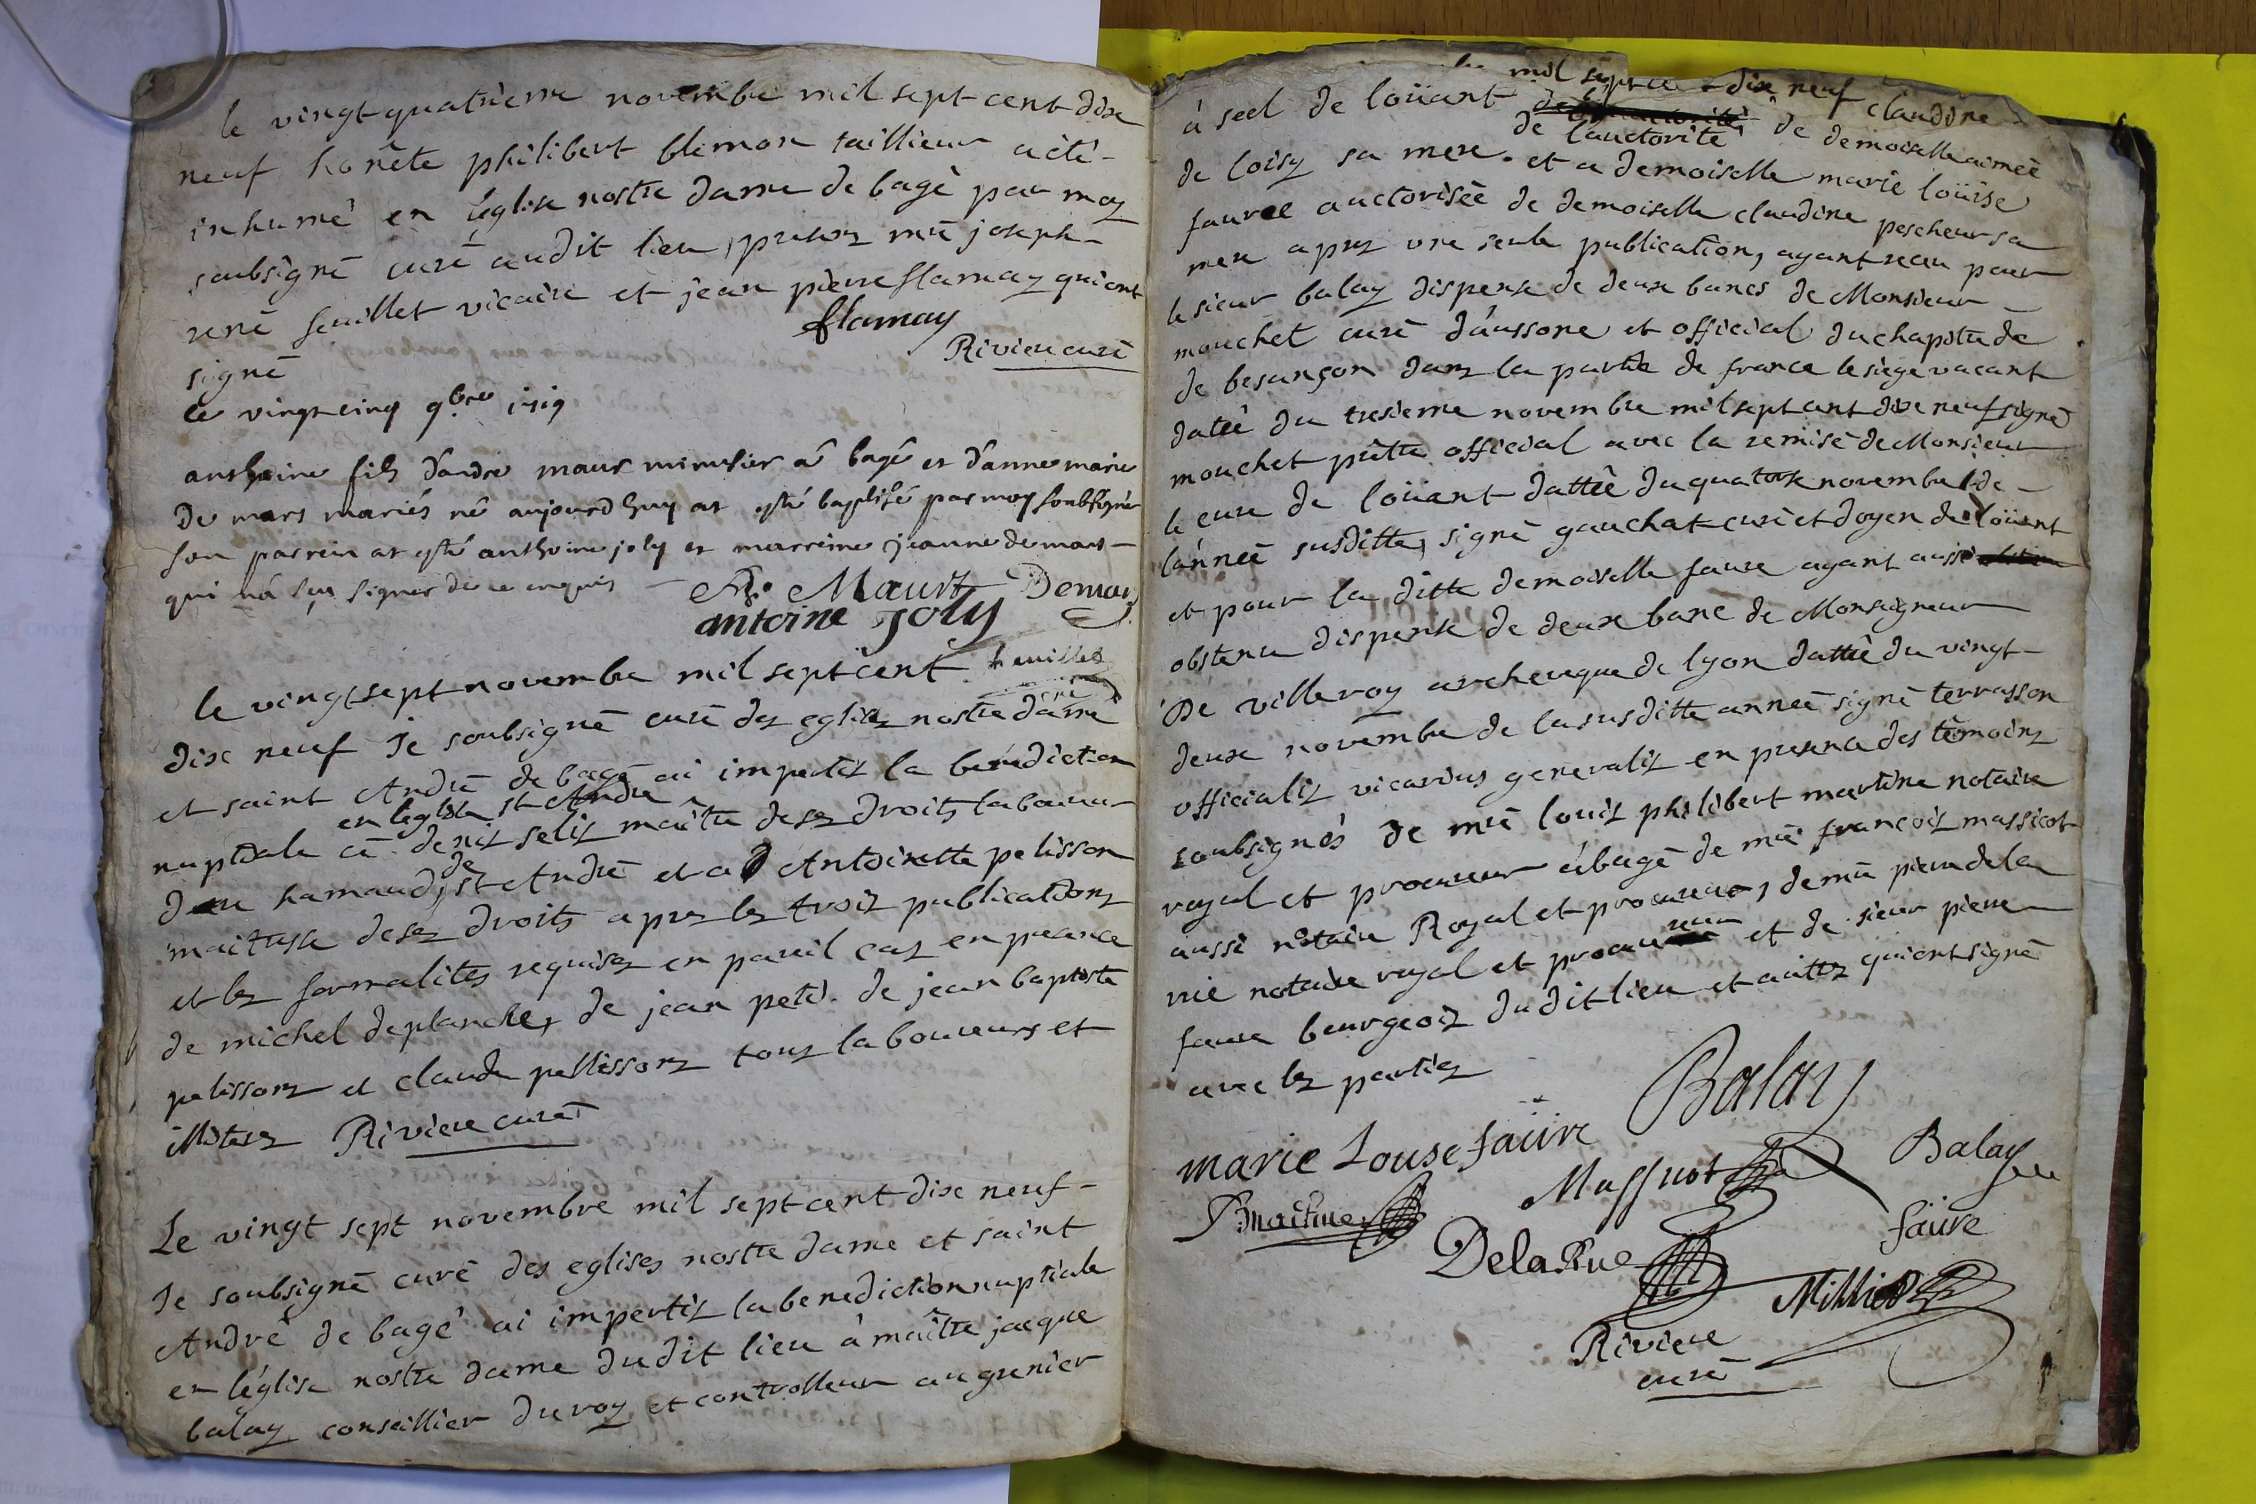 le vingt quatrieme novembre mil sept cent dix
neuf honête philibert blemon taillieur a été
inhumé en l'église nostre dame de bagé par moy
soubsigné curé audit lieu, presens mre joseph
rené feuillet vicaire et jean pierre flamay qui ont
signé
flamay
Riviere curé
le vingt cinq 9bre 1719
anthoine fils d'andre maur minusier a bagé et d'anne marie
de mars mariés né aujourdhuy at esté baptisé par moy soubsigné
son parrein at esté anthoine joly et marreine jeanne de mars
qui n'a sçu signer de ce enquis
Maurt Demars
antoine Joly
feuillet
le vingt sept novembre mil sept cent
dix neuf Je soubsigné curé des eglises nostre dame
et saint André de bagé ai impertis la benediction
en l'eglise st André
nuptiale à denis selis maitre deses droits laboureur
du hamaud de st André et a Antoinette pelisson
maitresse deses droits apres les trois publications
et les formalités requises en pareil cas en presence
de michel deplanche, de jean petit de jean baptiste
pelisson et claude pellisson tous laboureurs et
illiteres Riviere curé
Le vingt sept novembre mil sept cent dix neuf
Je soubsigné curé des eglises nostre dame et saint
André de bagé ai impertis la benediction nuptiale
en l'église nostre dame dudit lieu à maître jacque
balay conseillier du roy et controlleur au grenier
mil sept ce dix neuf claudine
à seel de loüant de l'auctorité de demoiselle aimée
de loisy sa mere. et a demoiselle marie loüise
faure auctorisée de demoiselle claudine pescheur sa
mere apres une seule publication, ayant receu pour
le sieur balay dispense de deux bancs de Monsieur
mouchet curé d'aussone et official du chapitre de
de besançon dans la partie de france le siege vacant
datté du tresieme novembre mil sept cent dix neuf signé
mouchet prêtre official avec la remise de Monsieur
le cure de loüant dattée du quatorse novembre de
lannée susditte, signé gauchat curé et doyen de loüant
et pour la ditte demoiselle faure ayant aussi
obstenu dispense de deux banc de Monseigneur
De villeroy archeveque de lyon dattée du vingt
deux novembre de la susditte année signé terrasson
officialis vicarius generalis en presence des têmoins
soubsignés de mre louis philibert martine notaire
royal et procureur à bagé de mre françois massicot
aussi notaire Royal et procureur, de mre pierre dela
rüe notaire royal et procureur et de sieur pierre
faure bourgeois dudit lieu et autres qui ont signé
avec les parties
Balay
marie Louse faüre
Balay
Martine
Delarue
faüre
Milliet
Riviere
curé